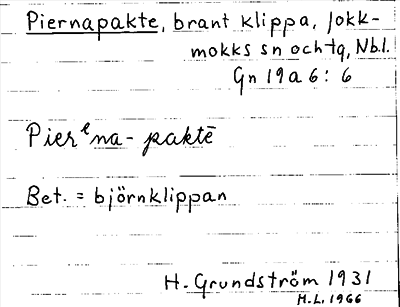 Piernapakte, brant klippa, Jokk-
mokks sn och tg, Nb.l.
Gn 19a 6: 6
Pierᵉna-paktē
Bet. = björnklippan
H. Grundström 1931
H.L. 1966